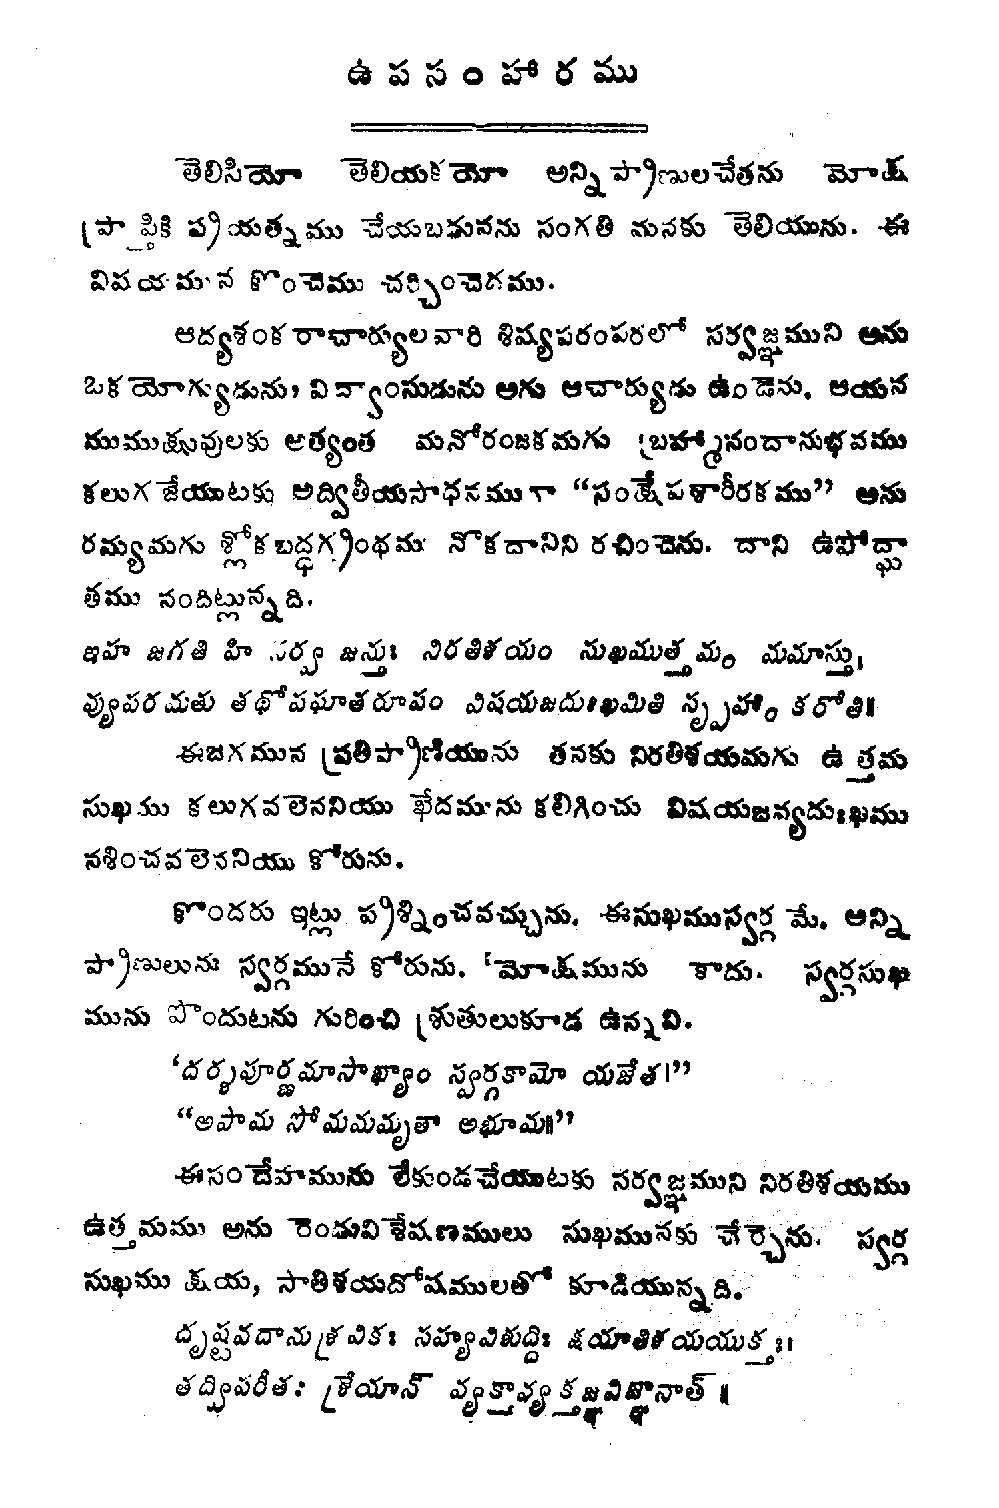 ఉపసంహారము
తెలిసియో తెలియకయో అన్ని ప్రాణులచేతను మోక్ష
ప్రాప్తికి ప్రయత్నము చేయబడునను సంగతి మనకు తెలియును. ఈ
విషయమున కొంచెము చర్చించెదము.
ఆద్యశంకరాచార్యులవారి శిష్యపరంపరలో సర్వజ్ఞముని అను
ఒక యోగ్యుడును, విద్వాంసుడును అగు ఆచార్యుడు ఉండెను. ఆయన
ముముక్షువులకు అత్యంత మనోరంజకమగు బ్రహ్మానందానుభవము
కలుగజేయుటకు అద్వితీయసాధనముగా “సంక్షేపశారీరకము” అను
రమ్యమగు శ్లోకబద్ధగ్రంథము నొకదానిని రచించెను. దాని ఉపోద్ఘా
తము నందిట్లున్నది.
ఇహ జగతి హి సర్వ జన్తుః నిరతిశయం సుఖముత్తమం మమాస్తు,
వ్యుపరమతు తథోపఘాతరూపం విషయజదుఃఖమితి స్పృహాం కరోతి॥
ఈజగమున ప్రతిప్రాణియును తనకు నిరతిశయమగు ఉత్తమ
సుఖము కలుగవలెననియు ఖేదమును కలిగించు విషయజన్యదుఃఖము
నశించవలెననియు కోరును.
కొందరు ఇట్లు ప్రశ్నించవచ్చును. ఈసుఖముస్వర్గ మే. అన్ని
ప్రాణులును స్వర్గమునే కోరును. ‘మోక్షమును కాదు. స్వర్గసుఖ
మును పొందుటను గురించి శ్రుతులుకూడ ఉన్నవి.
‘దర్శపూర్ణమాసాఖ్యాం స్వర్గకామో యజేత।”
“అపామ సోమమమృతా అభూమ॥”
ఈసందేహమును లేకుండచేయుటకు సర్వజ్ఞముని నిరతిశయము
ఉత్తమము అను రెండువిశేషణములు సుఖమునకు చేర్చెను. స్వర్గ
సుఖము క్షయ, సాతిశయదోషములతో కూడియున్నది.
దృష్టవదానుశ్రవికః సహ్యవిశుద్ధిః క్షయాతిశయయుక్తః।
తద్విపరీతః శ్రేయాన్ వ్యక్తావ్యక్తజ్ఞవిజ్ఞానాత్ ॥